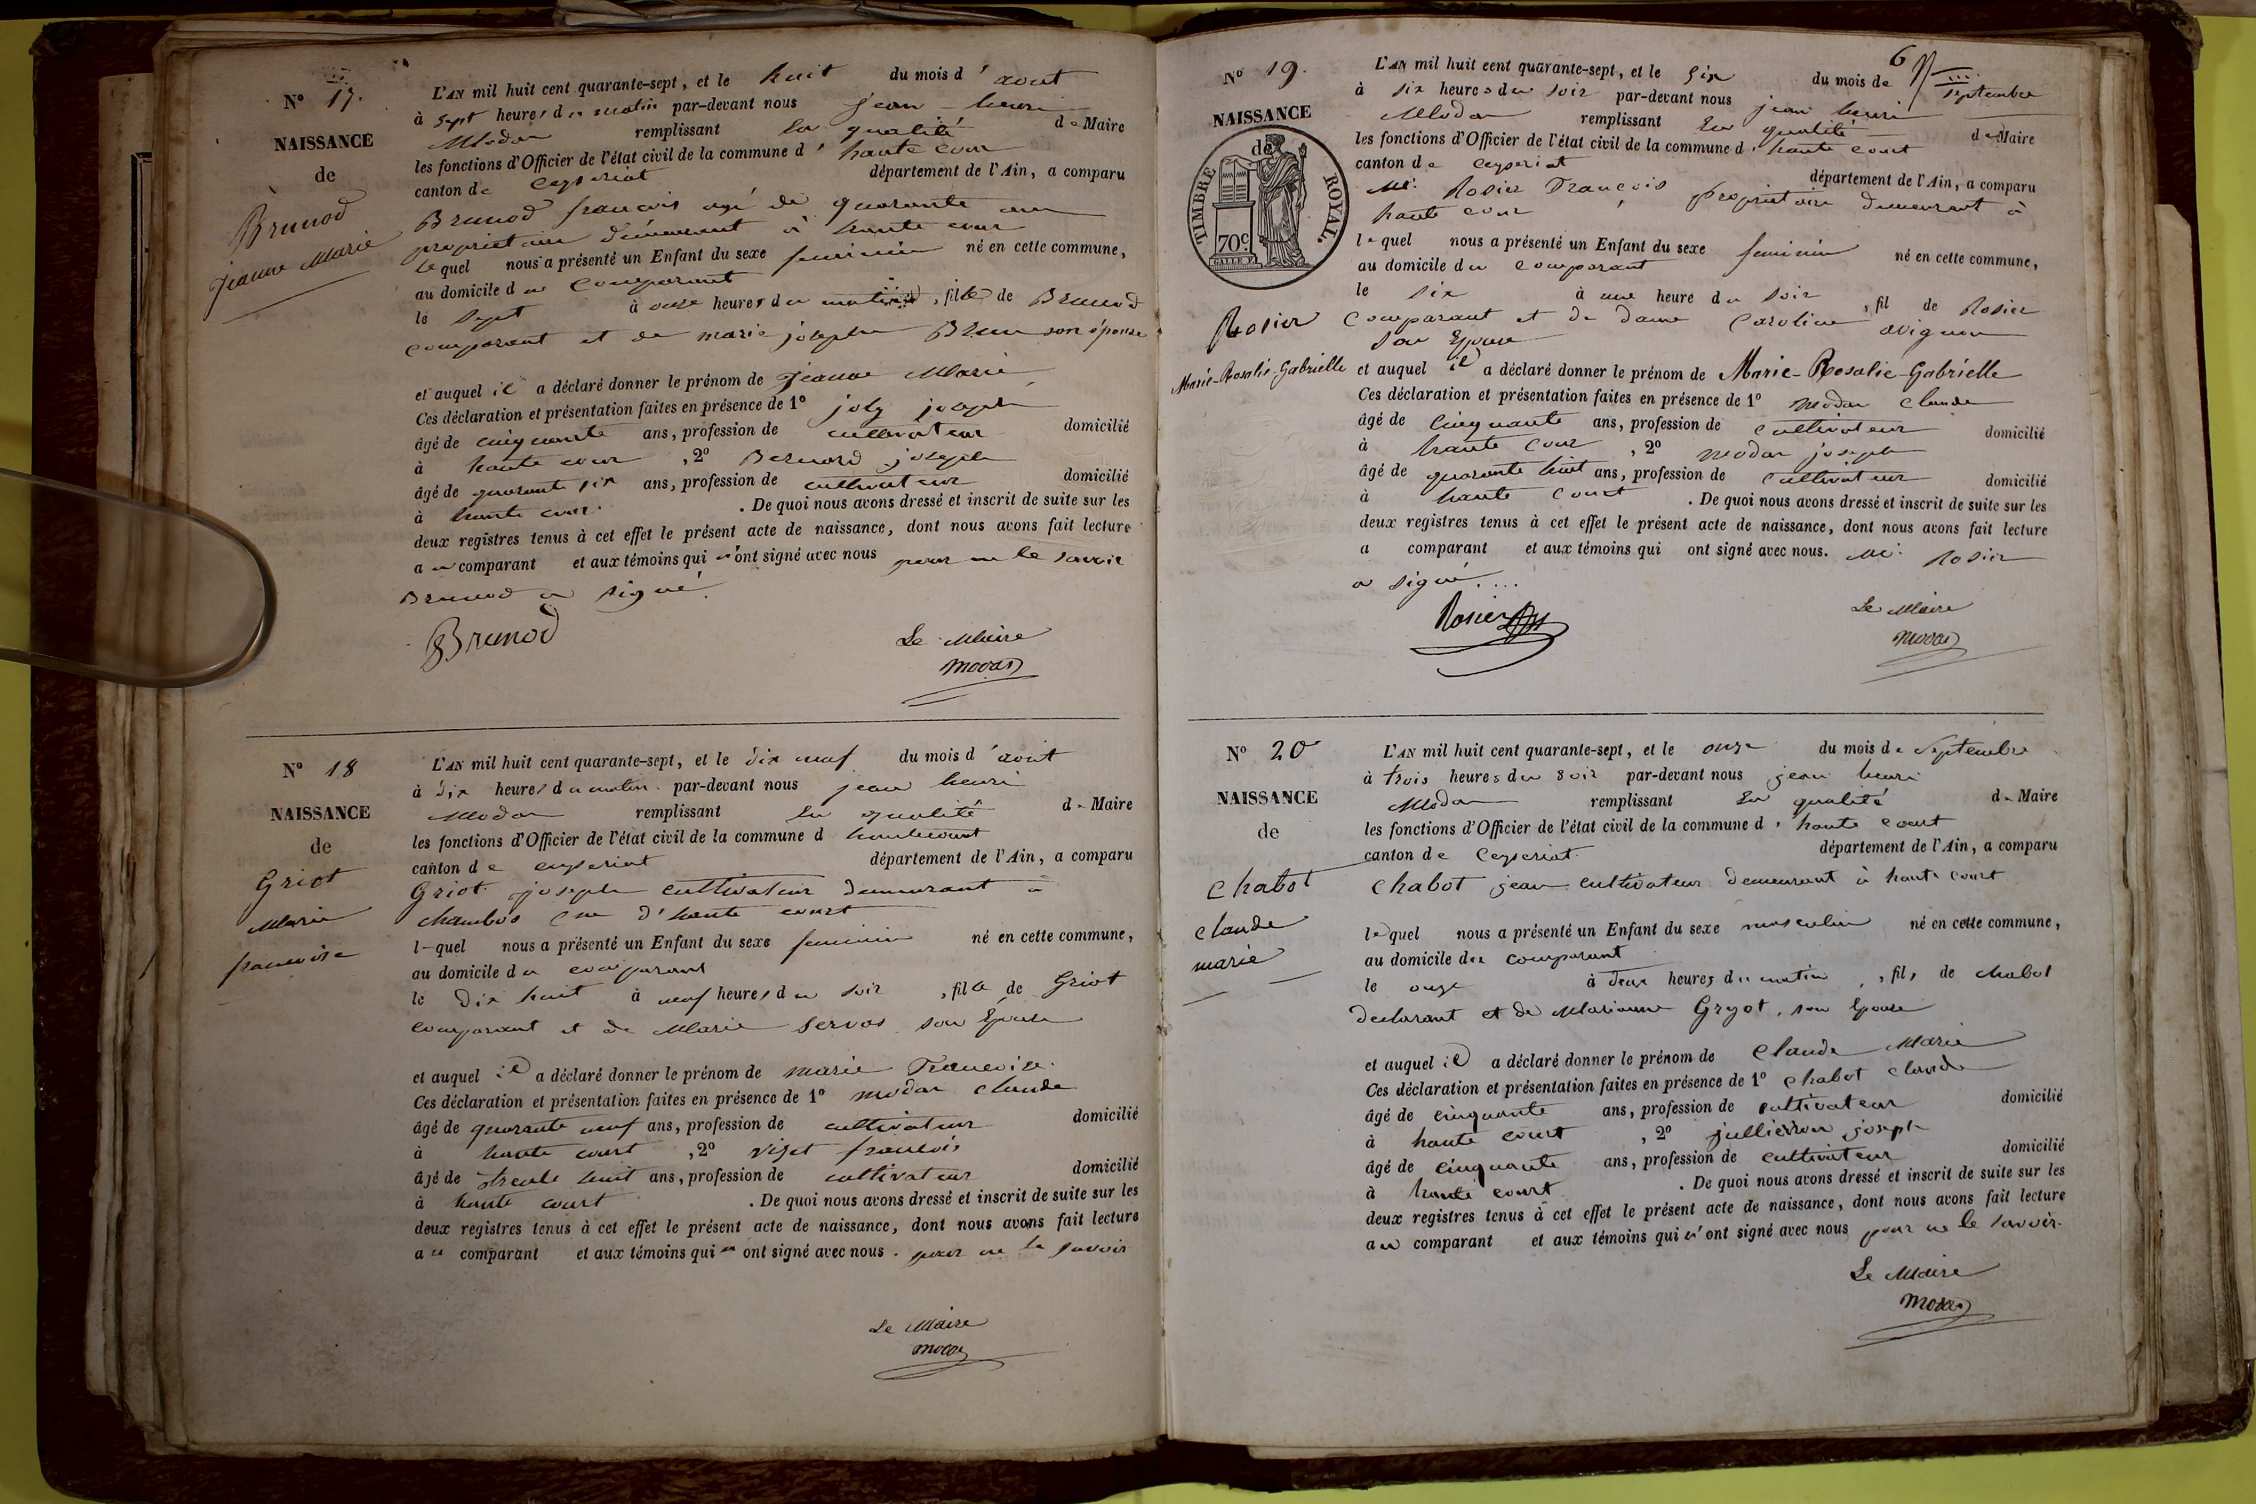 N° 17.
NAISSANCE
de
Brunod
Jeanne Marie
L'AN mil huit cent quarante-sept, et le huit du mois d'aout
à sept heures du matin par-devant nous jean henri
Modas remplissant en qualité de Maire
les fonctions d'Officier de l'état civil de la commune d'haute cour
canton de Ceyseriat département de l'Ain, a comparu
Brunod francois agé de quarante ans
proprietaire demeurant à haute cour
lequel nous a présenté un Enfant du sexe feminin né en cette commune,
au domicile du comparant
le sept à onze heures du matin, fille de Brunod
comparant et de marie josephe Brun son épouse
et auquel il a déclaré donner le prénom de Jeanne Marie
Ces déclaration et présentation faites en présence de 1° joly joseph
âgé de cinquante ans, profession de cultivateur domicilié
à haute cour, 2° Bernard joseph
âgé de quarante six ans, profession de cultivateur domicilié
à haute cour. De quoi nous avons dressé et inscrit de suite sur les
deux registres tenus à cet effet le présent acte de naissance, dont nous avons fait lecture
au comparant et aux témoins qui n'ont signé avec nous pour ne le savoir
Brunod a signé.
Brunod
Le Maire
Modas
N° 18
NAISSANCE
de
Griot
Marie
francoise
L'AN mil huit cent quarante-sept, et le dix neuf du mois d'aout
à dix heures du matin par-devant nous jean henri
Modas remplissant en qualité de Maire
les fonctions d'Officier de l'état civil de la commune d hautecourt
canton de ceyseriat département de l'Ain, a comparu
Griot joseph cultivateur demeurant à
chambos cne d'haute court
lequel nous a présenté un Enfant du sexe feminin né en cette commune,
au domicile du comparant
le dix huit à neuf heures du soir, fille de Griot
comparant et de Marie Servas son Epouse
et auquel il a déclaré donner le prénom de marie Francoise.
Ces déclaration et présentation faites en présence de 1° modas claude
âgé de quarante neuf ans, profession de cultivateur domicilié
à haute court, 2° viset francois
âgé de trente huit ans, profession de cultivateur domicilié
à haute court. De quoi nous avons dressé et inscrit de suite sur les
deux registres tenus à cet effet le présent acte de naissance, dont nous avons fait lecture
au comparant et aux témoins qui n ont signé avec nous. pour ne le savoir
Le Maire
Modas
6
N° 19.
NAISSANCE
de
TIMBRE ROYAL.
70c.
Rosier
Marie-Rosalie-Gabrielle
L'AN mil huit cent quarante-sept, et le six du mois de septembre
à six heures du soir par-devant nous jean henri
Modas remplissant en qualité de Maire
les fonctions d'Officier de l'état civil de la commune d'haute court
canton de Ceyseriat département de l'Ain, a comparu
Mr. Rosier François, proprietaire demeurant à
haute cour
lequel nous a présenté un Enfant du sexe feminin né en cette commune,
au domicile du comparant
le six à une heure du soir, fil de Rosier
comparant et de dame Caroline avignon
son Epouse
et auquel il a déclaré donner le prénom de Marie-Rosalie-Gabrielle
Ces déclaration et présentation faites en présence de 1° modas claude
âgé de cinquante ans, profession de cultivateur domicilié
à haute cour, 2° modas joseph
âgé de quarante huit ans, profession de cultivateur domicilié
à haute court. De quoi nous avons dressé et inscrit de suite sur les
deux registres tenus à cet effet le présent acte de naissance, dont nous avons fait lecture
a comparant et aux témoins qui ont signé avec nous. Mr. Rosier
a signé....
Rosier
Le Maire
Modas
N° 20
NAISSANCE
de
Chabot
claude
marie
L'AN mil huit cent quarante-sept, et le onze du mois de Septembre
à trois heures du soir par-devant nous jean henri
Modas remplissant en qualité de Maire
les fonctions d'Officier de l'état civil de la commune d'haute court
canton de Ceyseriat. département de l'Ain, a comparu
Chabot jean cultivateur demeurant à haute court
lequel nous a présenté un Enfant du sexe masculin né en cette commune,
au domicile du comparant
le onze à deux heures du matin, fils de chabot
declarant et de Marianne Gryot, son Epouse
et auquel il a déclaré donner le prénom de Claude Marie
Ces déclaration et présentation faites en présence de 1° chabot claude
âgé de cinquante ans, profession de cultivateur domicilié
à haute court, 2° jullieron joseph
âgé de cinquante ans, profession de cultivateur domicilié
à haute court. De quoi nous avons dressé et inscrit de suite sur les
deux registres tenus à cet effet le présent acte de naissance, dont nous avons fait lecture
au comparant et aux témoins qui n'ont signé avec nous pour ne le savoir.
Le Maire
Modas